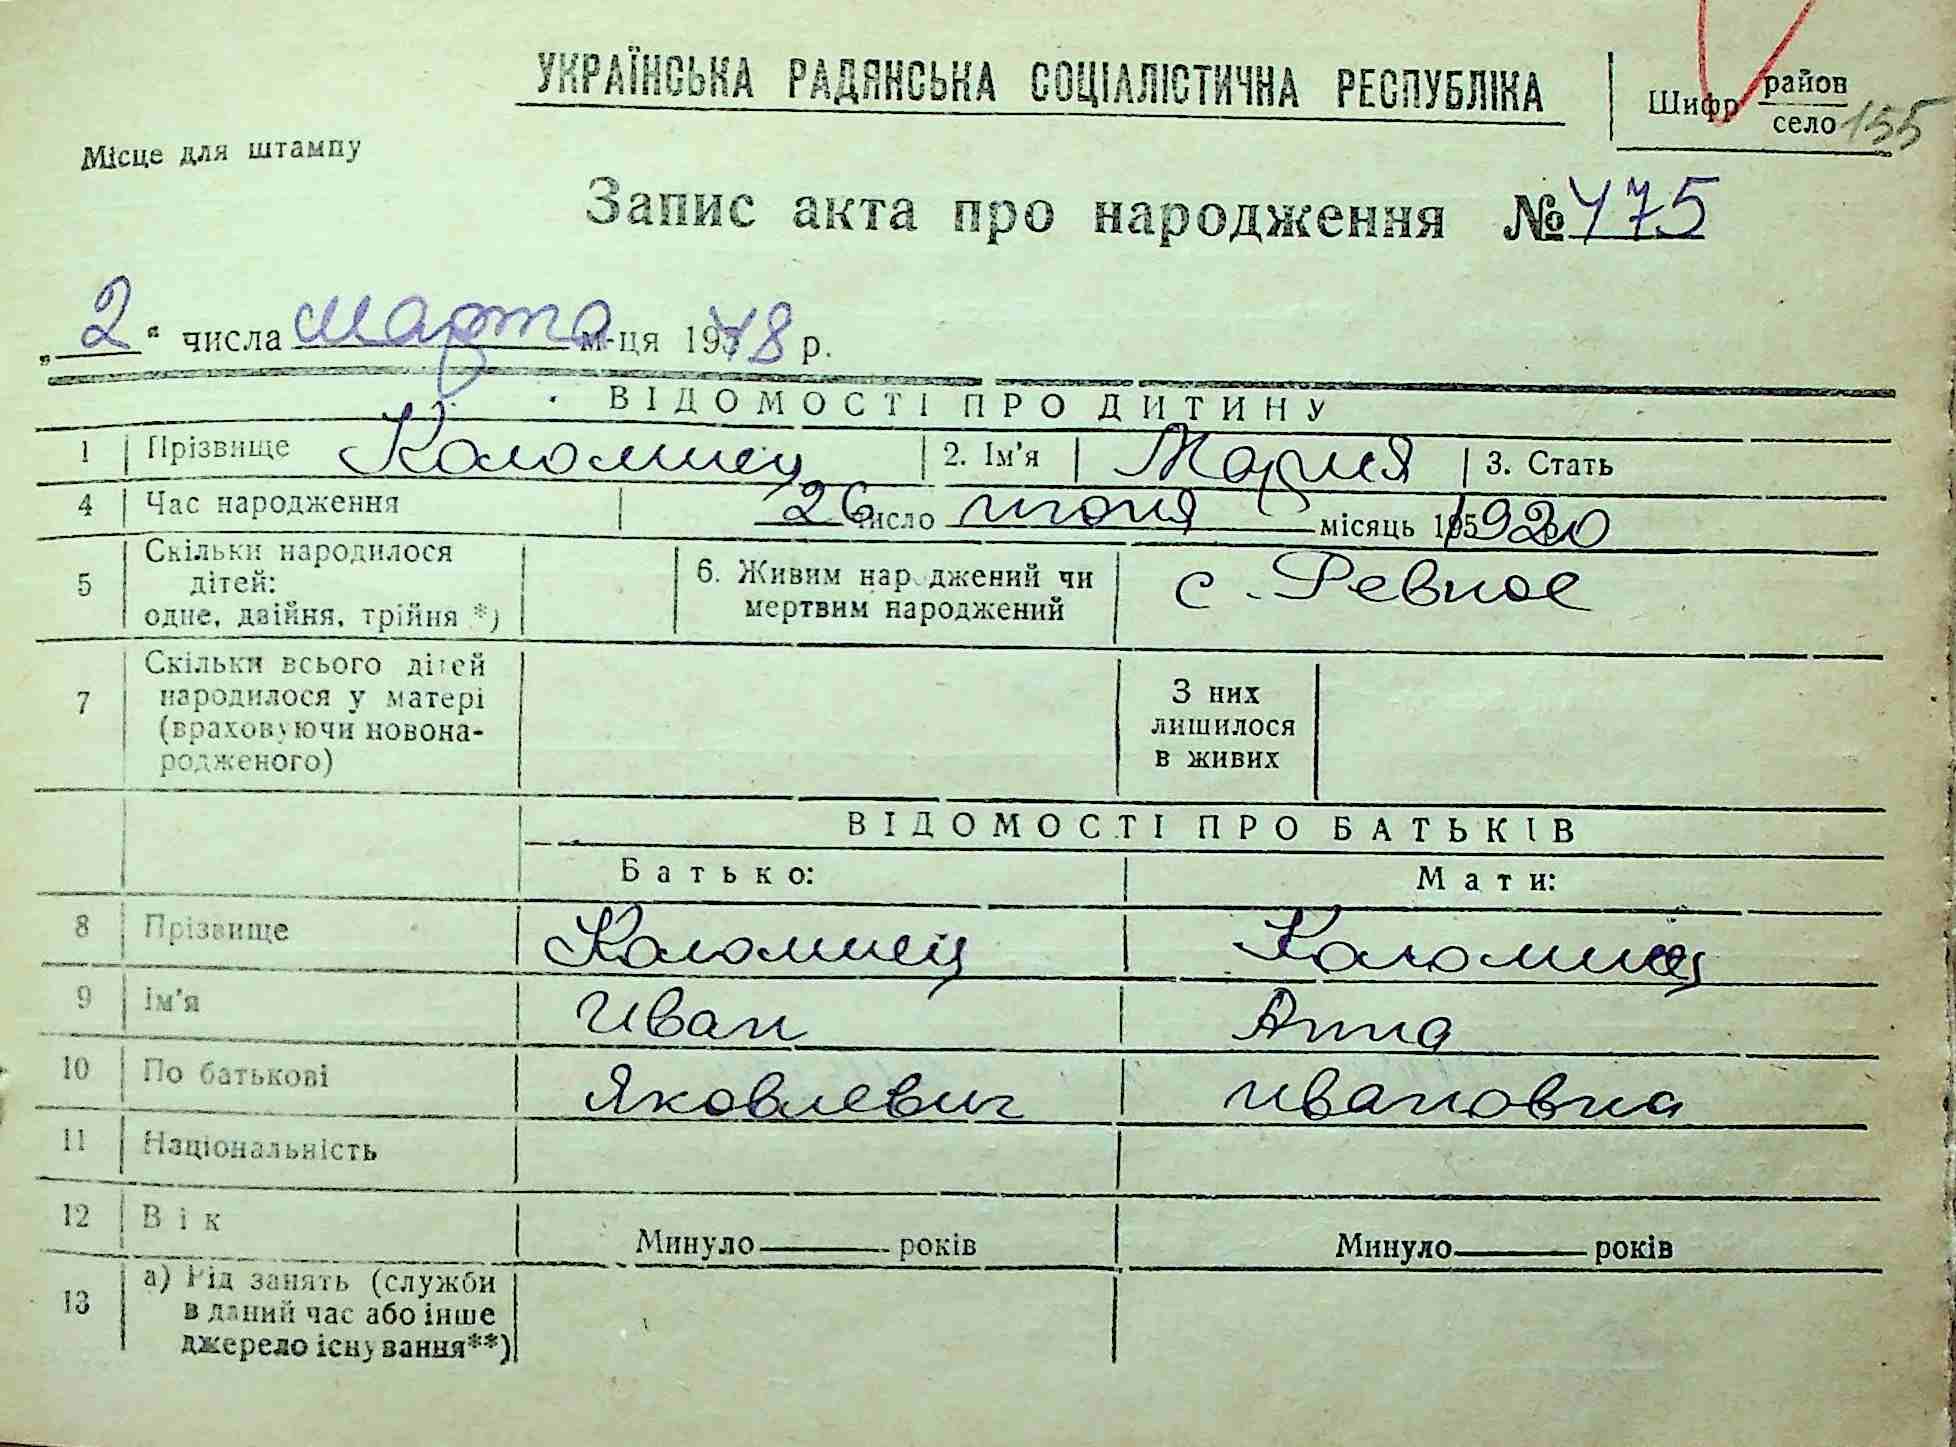 УКРАЇНСЬКА РАДЯНСЬКА СОЦІАЛІСТИЧНА РЕСПУБЛІКА
Шифр район
село 155
Місце для штампу
Запис акта про народження № 475
„2“ числа марта м-ця 1948 р.
ВІДОМОСТІ ПРО ДИТИНУ
1 Прізвище Коломиец 2. Ім’я Мария 3. Стать
4 Час народження 26 число июня місяць 1920
5 Скільки народилося дітей: одне, двійня, трійня *) 6. Живим народжений чи мертвим народжений с. Ревное
7 Скільки всього дітей народилося у матері (враховуючи новонародженого) З них лишилося в живих
ВІДОМОСТІ ПРО БАТЬКІВ
Батько: Мати:
8 Прізвище Коломиец Коломиец
9 Ім’я Иван Анна
10 По батькові Яковлевич Ивановна
11 Національність
12 Вік Минуло років Минуло років
13 а) Рід занять (служби в даний час або інше джерело існування**)